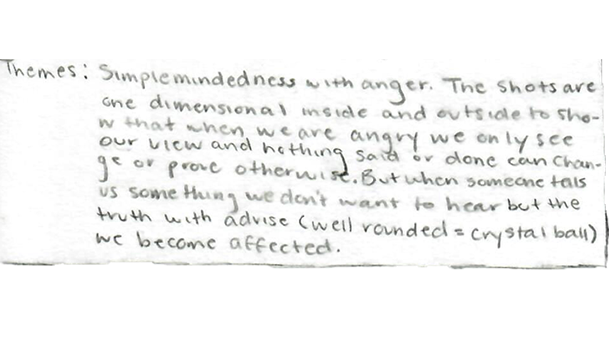 Themes: Simplemindedness with anger. The shots are
one dimensional inside and outside to sho-
w that when we are angry we only see
our view and nothing said or done can chan-
ge or prove otherwise. But when someone tells
us something we don't want to hear but the
truth with advise (well rounded = crystal ball)
we become affected.